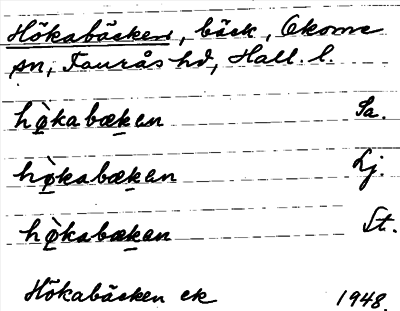 Hökabäcken, bäck, Okome
sn, Faurås hd, Hall. l.
hø̀kabækən Sa.
hø̀kabækən Lj.
hø̀kabækən St.
Hökabäcken ek 1948.